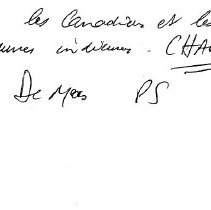 les Canadiens et les
indiennes. CHA
De Mers PS